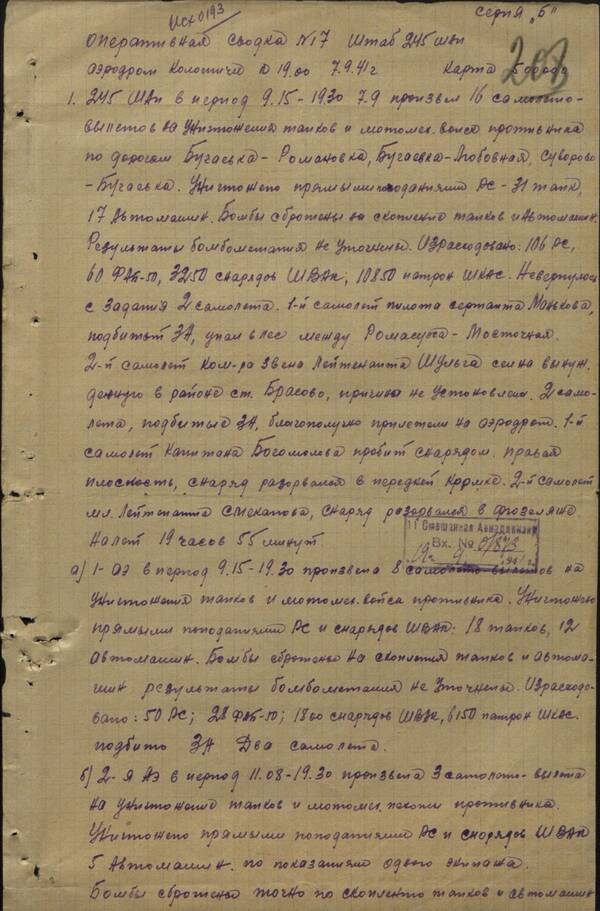 Исх 0193
Серия „Б"
203
Оперативная сводка №17 Штаб 245 шап
Аэродром Колпитичи к 19.00 7.9.41г Карта 500000
1. 245 Шап в период 9.15-19.30 7.9 произвел 16 самолето-
вылетов на уничтожения танков и мотомех. войск противника
по дорогам Бугаевка-Романовка, Бугаевка-Любовная, Суворово
-Бугаевка. Уничтожено прямыми попаданиями РС-31 танк,
17 автомашин. Бомбы сброшены на скопление танков и автомашин.
Результаты бомбометания не уточнены. Израсходовано: 106 РС,
60 ФАБ-50, 3250 снарядов ШВАК, 10850 патрон ШКАС. Невернулось
с задания 2 самолета. 1-й самолет пилота сержанта Манькова,
подбитый ЗА, упал в лес между - Мосточная.
2-й самолет ком-ра звена Лейтенанта Шульга сел на вынуж-
денную в районе ст. Брасово, причина не установлена. 2 само-
лета, подбитые ЗА, благополучно прилетели на аэродром. 1-й
самолет Капитана Богомолова пробит снарядом правая
плоскость, снаряд разорвался в передней кромке. 2-й самолет
мл. Лейтенанта снаряд разорвался в фюзеляже
Налет 19 часов 55 минут
11 Смешанная Авиадивизия
Вх. № 0/873
а) 1-АЭ в период 9.15-19.30 произвела 8 самолето-вылетов на
уничтожения танков и мотомех. войск противника. Уничтожено
прямыми попаданиями РС и снарядов ШВАК: 18 танков, 12
автомашин. Бомбы сброшены на скопления танков и автома-
шин результаты бомбометания не уточнены. Израсходо-
вано: 50 РС; 28 ФАБ-50; 1800 снарядов ШВАК, 6150 патрон ШКАС.
подбито ЗА Два самолета.
б) 2-я АЭ в период 11.08-19.30 произвела 3 самолето-вылета
на уничтожение танков и мотомех. противника.
Уничтожено прямыми попаданиями РС и снарядов ШВАК
5 Автомашин. по показаниям одного экипажа.
Бомбы сброшены точно по скоплению танков и автомашин